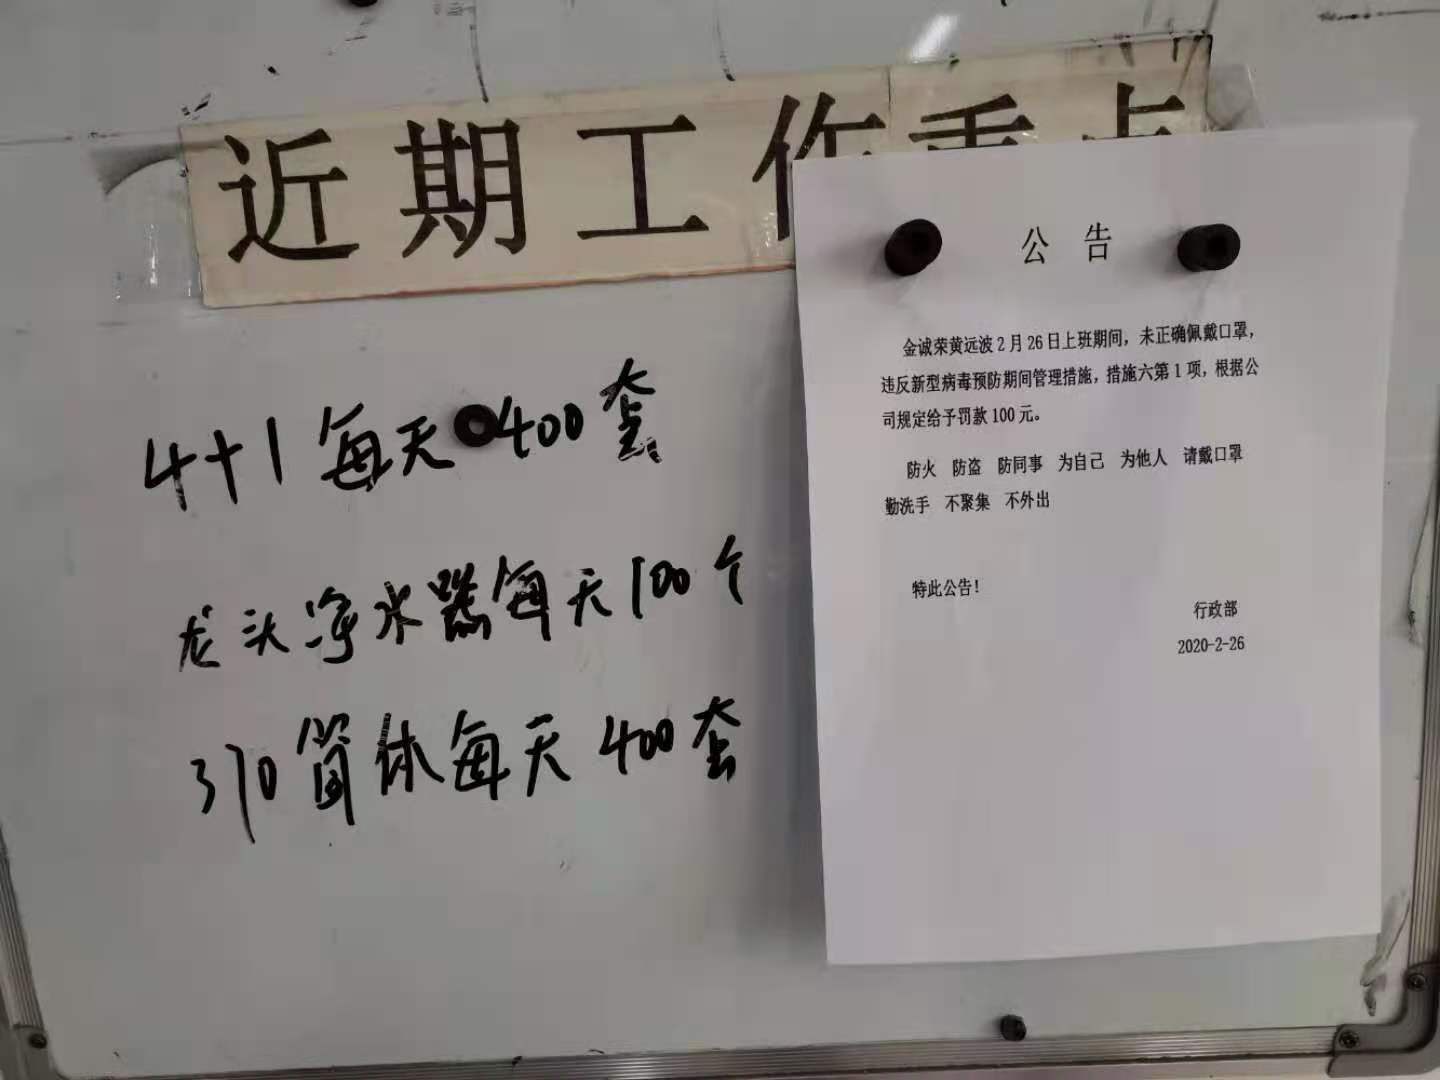 近期工作重点
4+1每天400套
龙头净水器每天100个
370筒体每天400套
公 告
金诚荣黄远波2月26日上班期间，未正确佩戴口罩，
违反新型病毒预防期间管理措施，措施六第1项，根据公
司规定给予罚款100元。
防火 防盗 防同事 为自己 为他人 请戴口罩
勤洗手 不聚集 不外出
特此公告!
行政部
2020-2-26